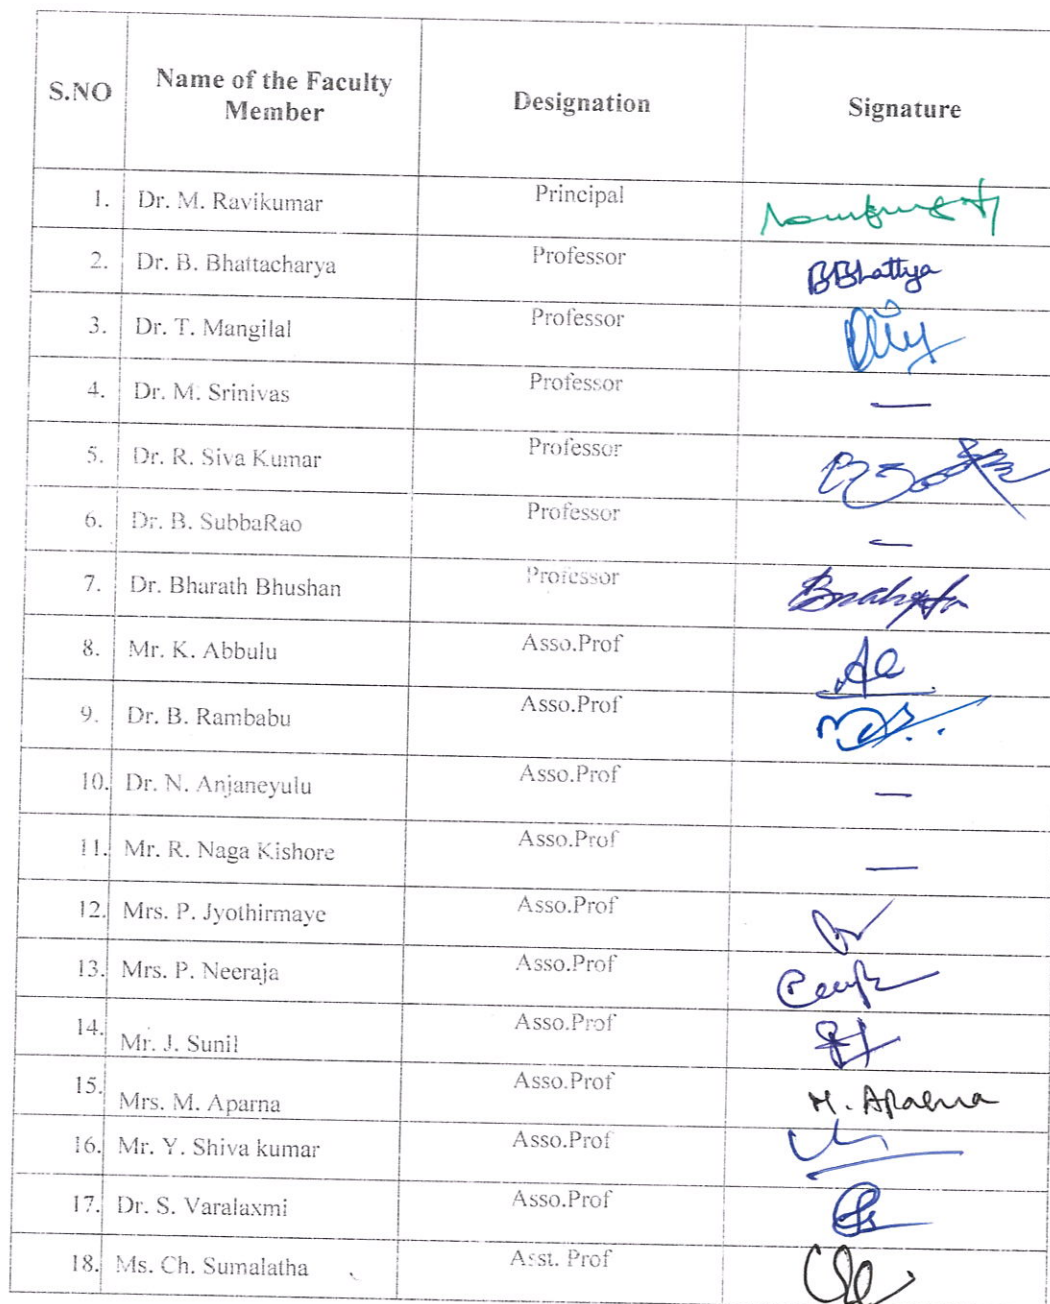 S.NO Name of the Faculty Member Designation Signature
1. Dr. M. Ravikumar Principal
2. Dr. B. Bhattacharya Professor BBhattya
3. Dr. T. Mangilal Professor
4. Dr. M. Srinivas Professor —
5. Dr. R. Siva Kumar Professor
6. Dr. B. SubbaRao Professor —
7. Dr. Bharath Bhushan Professor
8. Mr. K. Abbulu Asso.Prof
9. Dr. B. Rambabu Asso.Prof
10. Dr. N. Anjaneyulu Asso.Prof —
11. Mr. R. Naga Kishore Asso.Prof —
12. Mrs. P. Jyothirmaye Asso.Prof
13. Mrs. P. Neeraja Asso.Prof
14. Mr. J. Sunil Asso.Prof
15. Mrs. M. Aparna Asso.Prof M. Aparna
16. Mr. Y. Shiva kumar Asso.Prof
17. Dr. S. Varalaxmi Asso.Prof
18. Ms. Ch. Sumalatha Asst. Prof